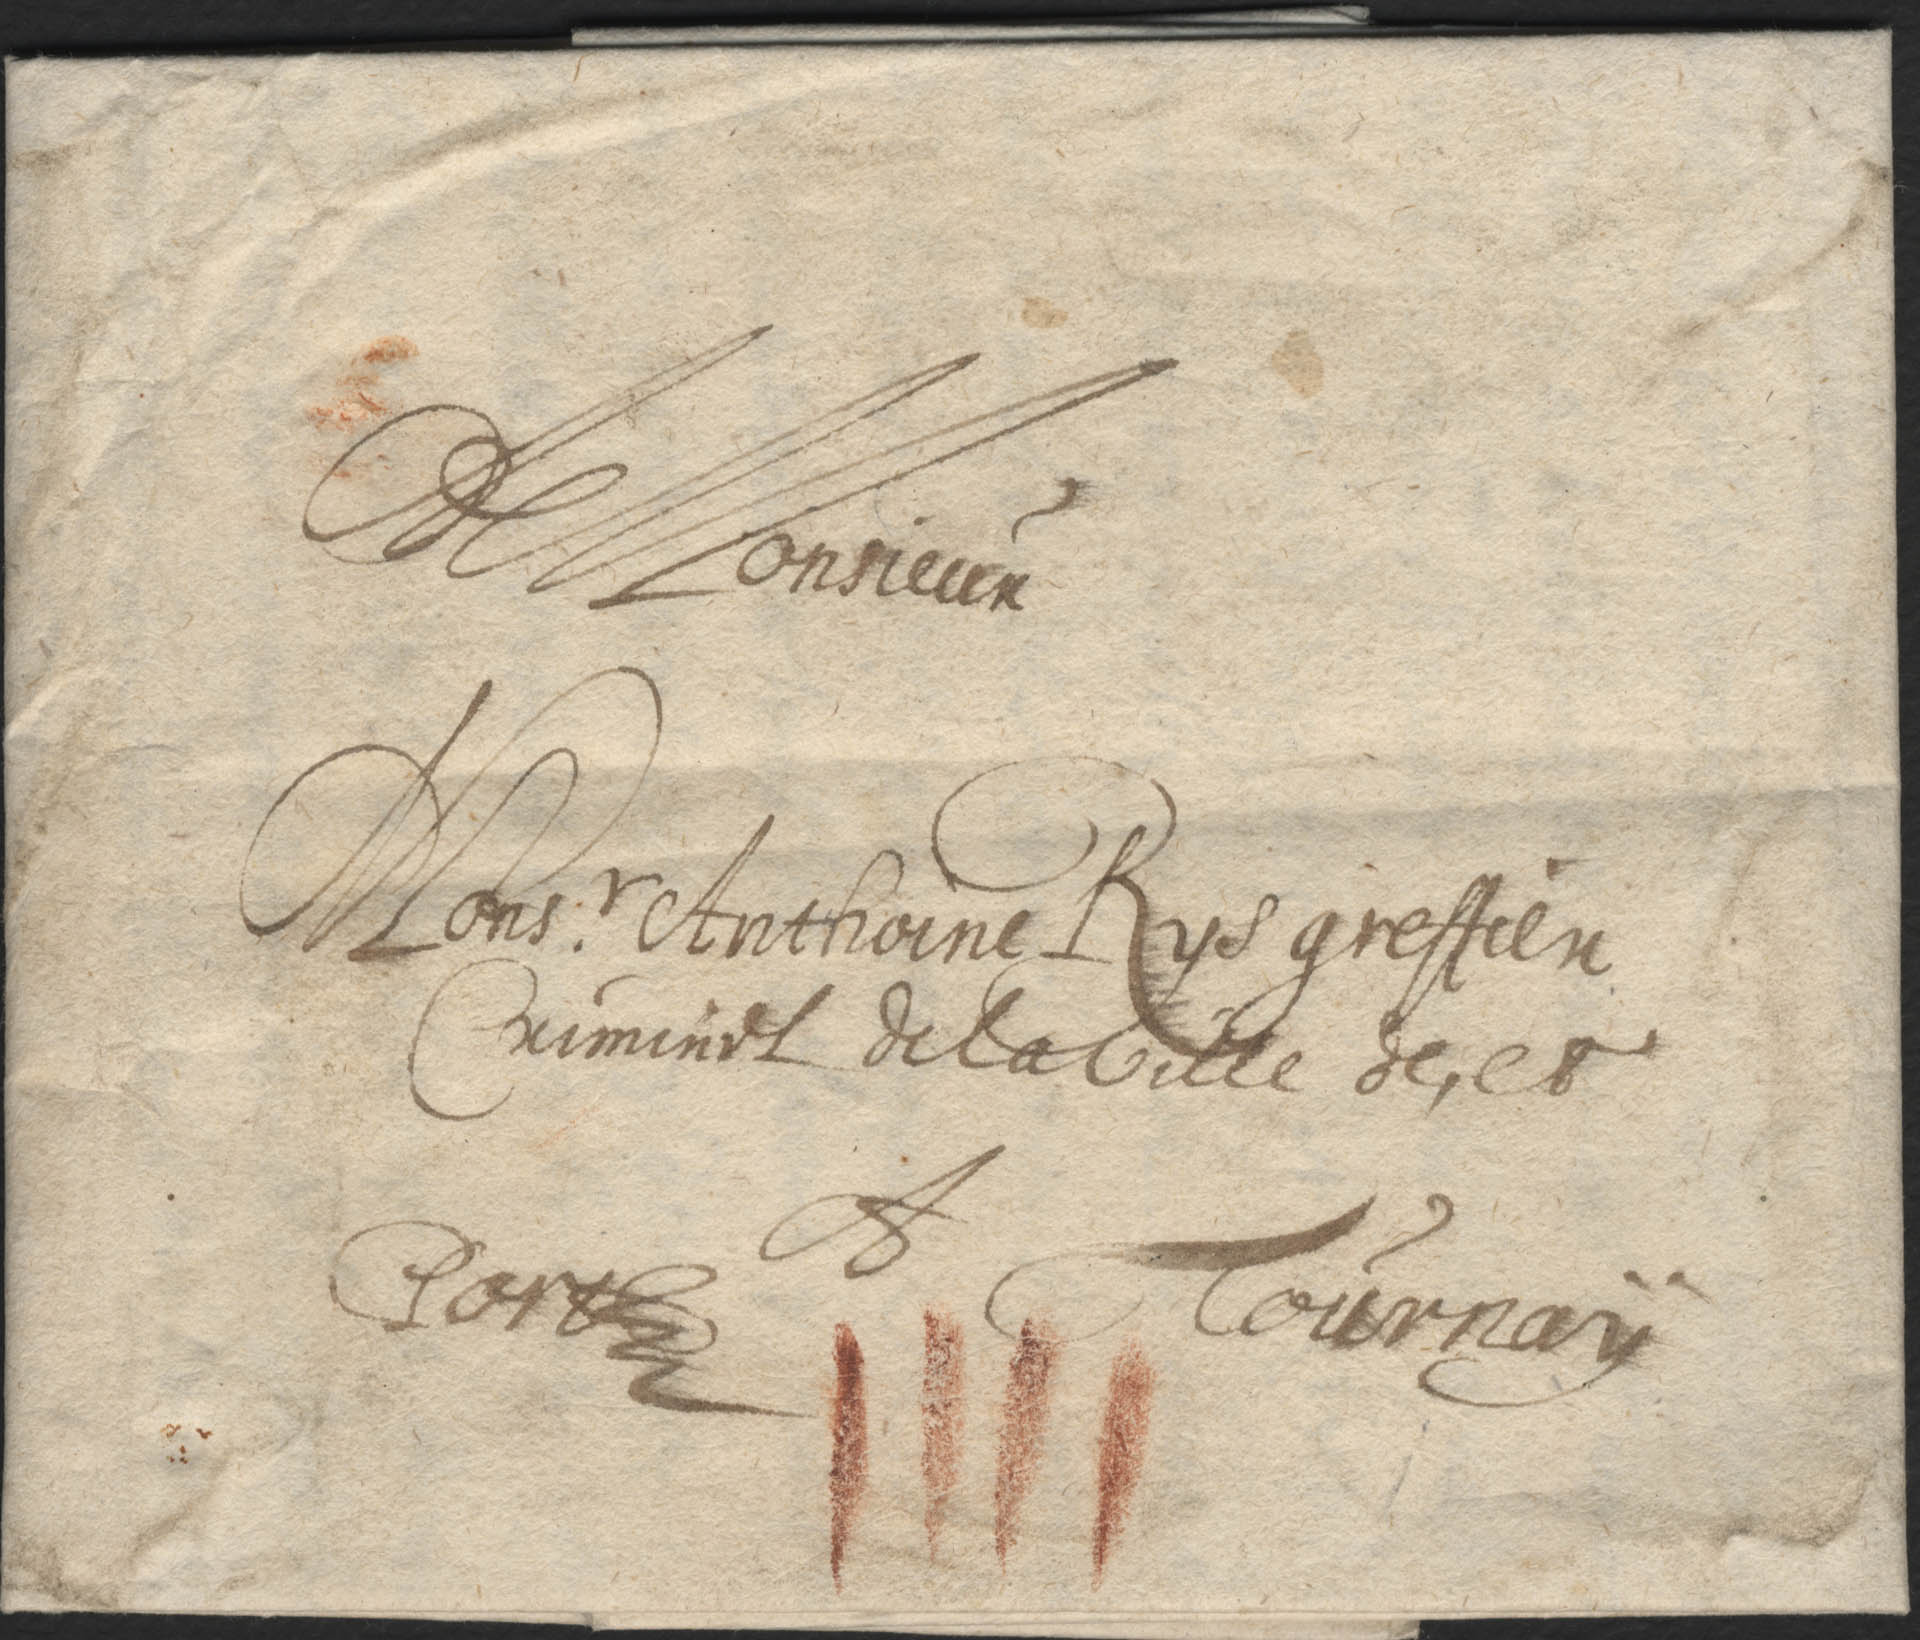 A Monsieur
Mons.r Anthoine Rys greffier
Criminel de la Ville de, et
A
Porte Tournaÿ
IIII